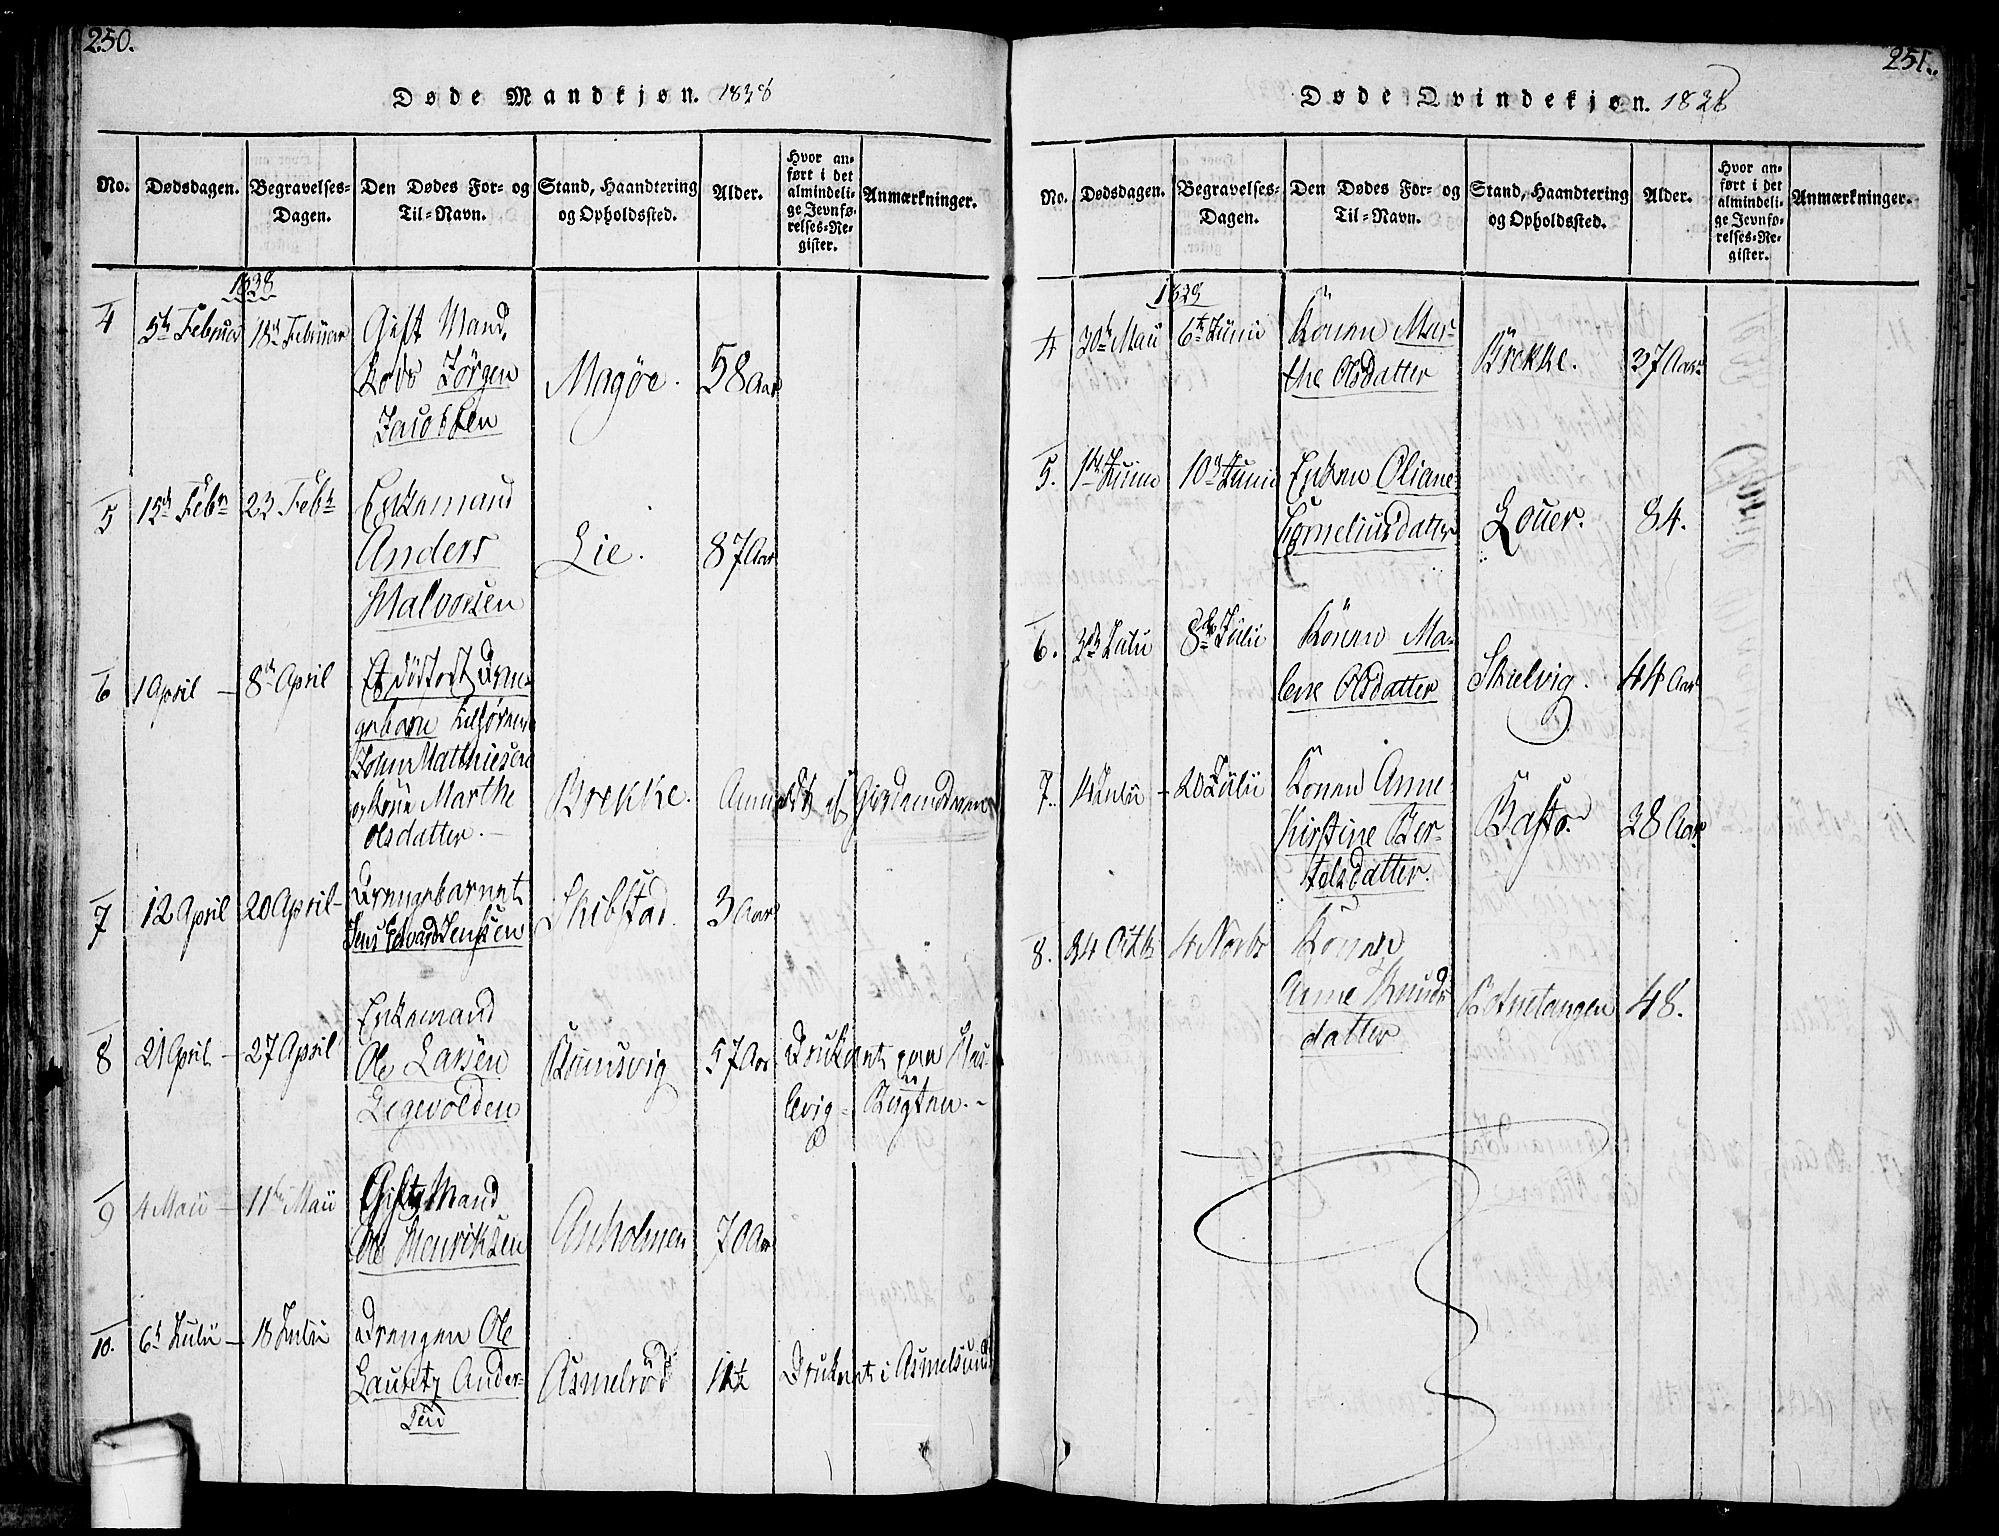 250.
Døde Mandkjøn. 1838
No. Dødsdagen. Begravelses-Dagen. Den Dødes For- og Til-Navn. Stand, Haandtering og Opholdssted. Alder. Hvor anført i det almindelige Jevnførelses-Register. Anmærkninger.
1838
4 5te Februar 18de Februar Gift Mand
Jørgen Magöe. 58 Aar
Jacobsen
5 15de Febr 23 Febr Enkemand
Anders Lie. 87 Aar
Halvorsen
6 1 April — 8de April Et dödfödt Drengebarn
John Matthiesen
Marthe Brekke.
Olsdatter. —
7 12 April 20 April — Drengebarnet Skibstad. 3 Aar
Jens Edvard Jensen
8 21 April — 27 April Enkemand
Ole Larsen 57 Aar
Legevolden
9 4 Maii — 11te Maii Gift Mand
Ole Henriksen Asholmen 70 Aar
10. 6te Julii — 18 Julii Drengen Ole
Lauritz Andersen Asmelröd Druknet i Asmelsund
251.
Døde Qvindekjøn. 1838
No. Dødsdagen. Begravelses-Dagen. Den Dødes For- og Til-Navn. Stand, Haandtering og Opholdssted. Alder. Hvor anført i det almindelige Jevnførelses-Register. Anmærkninger.
1838
4 30te Maii 6te Junii Konen Mar-
the Olsdatter Brekke. 37 Aar
5. 1ste Junii 10de Junii Enken Oliane
Corneliusdatter Louer. 84.
6. 3de Julii 8de Julii Konen Ma-
lene Olsdatter Skielvig. 44 Aar
7. 14 Julii — 20 Julii Konen Anne
Kirstine Ber- Basto. 38 Aar
telsdatter.
8. 24 Octbr 4 Novbr Konen
Anne Knuds Kosnetangen 48.
datter